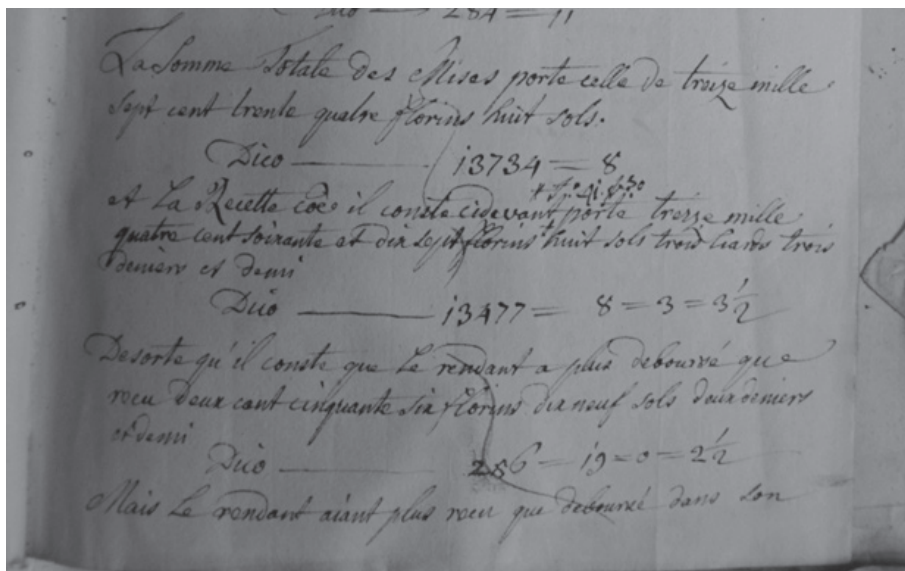 284 = 11
La Somme Totale des Mises porte celle de treize mille
sept cent trente quatre florins huit sols.
Dico — 13734 = 8
et La Recette coe il conste cidevant porte treize mille
quatre cent soixante et dix sept florins huit sols trois liards trois
deniers et demi
Dico — 13477 = 8 = 3 = 3½
Desorte qu'il conste que Le rendant a plus deboursé que
recu deux cent cinquante six florins dixneuf sols deux deniers
et demi
Dico — 256 = 19 = 0 = 2½
Mais Le rendant aiant plus recu que deboursé dans son